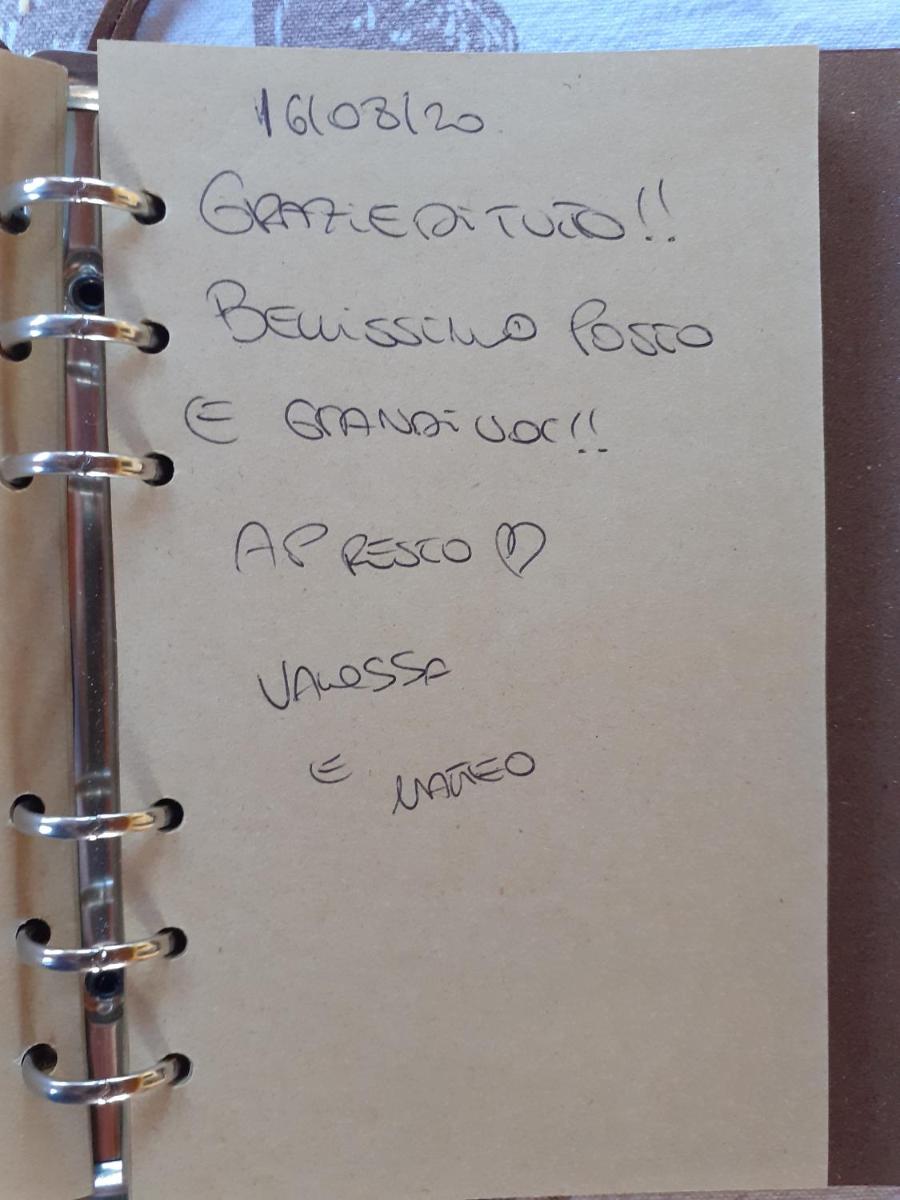 16/08/20
GRAZIE DI TUTTO!!
BELLISSIMO POSTO
E GRANDI VOI!!
A PRESTO ♡
VANESSA
E MATTEO